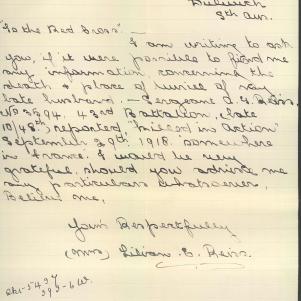 Dulwich
8th Aus.
"To the Red Cross" —
I am writing to ask
you, if it were possible to find me
any information, concerning the
death & place of buriel of my
late husband. — Sergeant
43rd Battalion, (late
10/48th), reported "killed in action"
September 29th 1918. somewhere
in France. I would be very
grateful, should you advise me
any particulars whatsoever.
Believe me,
Yours Respectfully
(Mrs) Lilian E.